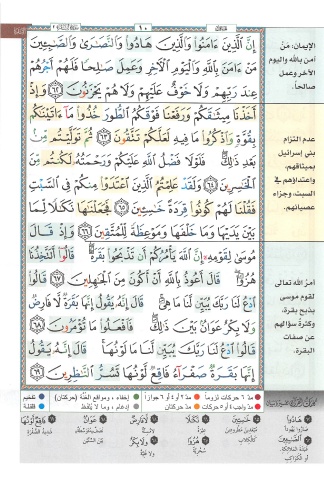 ١٠
إِنَّ ٱلَّذِينَ ءَامَنُوا۟ وَٱلَّذِينَ هَادُوا۟ وَٱلنَّصَـٰرَىٰ وَٱلصَّـٰبِـِٔينَ
مَنْ ءَامَنَ بِٱللَّهِ وَٱلْيَوْمِ ٱلْـَٔاخِرِ وَعَمِلَ صَـٰلِحًا فَلَهُمْ أَجْرُهُمْ
عِندَ رَبِّهِمْ وَلَا خَوْفٌ عَلَيْهِمْ وَلَا هُمْ يَحْزَنُونَ ٦٢ وَإِذْ
أَخَذْنَا مِيثَـٰقَكُمْ وَرَفَعْنَا فَوْقَكُمُ ٱلطُّورَ خُذُوا۟ مَآ ءَاتَيْنَـٰكُم
بِقُوَّةٍ وَٱذْكُرُوا۟ مَا فِيهِ لَعَلَّكُمْ تَتَّقُونَ ٦٣ ثُمَّ تَوَلَّيْتُم مِّنۢ
بَعْدِ ذَٰلِكَ فَلَوْلَا فَضْلُ ٱللَّهِ عَلَيْكُمْ وَرَحْمَتُهُۥ لَكُنتُم مِّنَ
ٱلْخَـٰسِرِينَ ٦٤ وَلَقَدْ عَلِمْتُمُ ٱلَّذِينَ ٱعْتَدَوْا۟ مِنكُمْ فِى ٱلسَّبْتِ
فَقُلْنَا لَهُمْ كُونُوا۟ قِرَدَةً خَـٰسِـِٔينَ ٦٥ فَجَعَلْنَـٰهَا نَكَـٰلًا لِّمَا
بَيْنَ يَدَيْهَا وَمَا خَلْفَهَا وَمَوْعِظَةً لِّلْمُتَّقِينَ ٦٦ وَإِذْ قَالَ
مُوسَىٰ لِقَوْمِهِۦٓ إِنَّ ٱللَّهَ يَأْمُرُكُمْ أَن تَذْبَحُوا۟ بَقَرَةً قَالُوٓا۟ أَتَتَّخِذُنَا
هُزُوًا قَالَ أَعُوذُ بِٱللَّهِ أَنْ أَكُونَ مِنَ ٱلْجَـٰهِلِينَ ٦٧ قَالُوا۟
ٱدْعُ لَنَا رَبَّكَ يُبَيِّن لَّنَا مَا هِىَ قَالَ إِنَّهُۥ يَقُولُ إِنَّهَا بَقَرَةٌ لَّا فَارِضٌ
وَلَا بِكْرٌ عَوَانٌۢ بَيْنَ ذَٰلِكَ فَٱفْعَلُوا۟ مَا تُؤْمَرُونَ ٦٨
قَالُوا۟ ٱدْعُ لَنَا رَبَّكَ يُبَيِّن لَّنَا مَا لَوْنُهَا قَالَ إِنَّهُۥ يَقُولُ
إِنَّهَا بَقَرَةٌ صَفْرَآءُ فَاقِعٌ لَّوْنُهَا تَسُرُّ ٱلنَّـٰظِرِينَ ٦٩
الإيمان: مَنْ
آمن بالله واليوم
الآخر وعمل
صالحاً.
عدم التزام
بني إسرائيل
بميثاقهم،
واعتداؤهم في
السبت، وجزاء
عصيانهم.
أمرُ الله تعالى
لقوم موسى
بذبح بقرة،
وكثرة سؤالهم
عن صفات
البقرة.
مدّ ٦ حركات لزوماً
مدّ ٢ أو ٤ أو ٦ جوازاً
إخفاء، ومواقع الغُنَّة (حركتان)
تفخيم
مدّ واجب ٤ أو ٥ حركات
مدّ حركتان
إدغام، وما لا يُلفَظ
قلقلة
هَادُوا
خَاسِئِينَ
نَكَالاً
لَا فَارِضٌ
عَوَانٌ
فَاقِعٌ لَوْنُهَا
الصَّابِئِينَ
هُزُواً
وَلَا بِكْرٌ